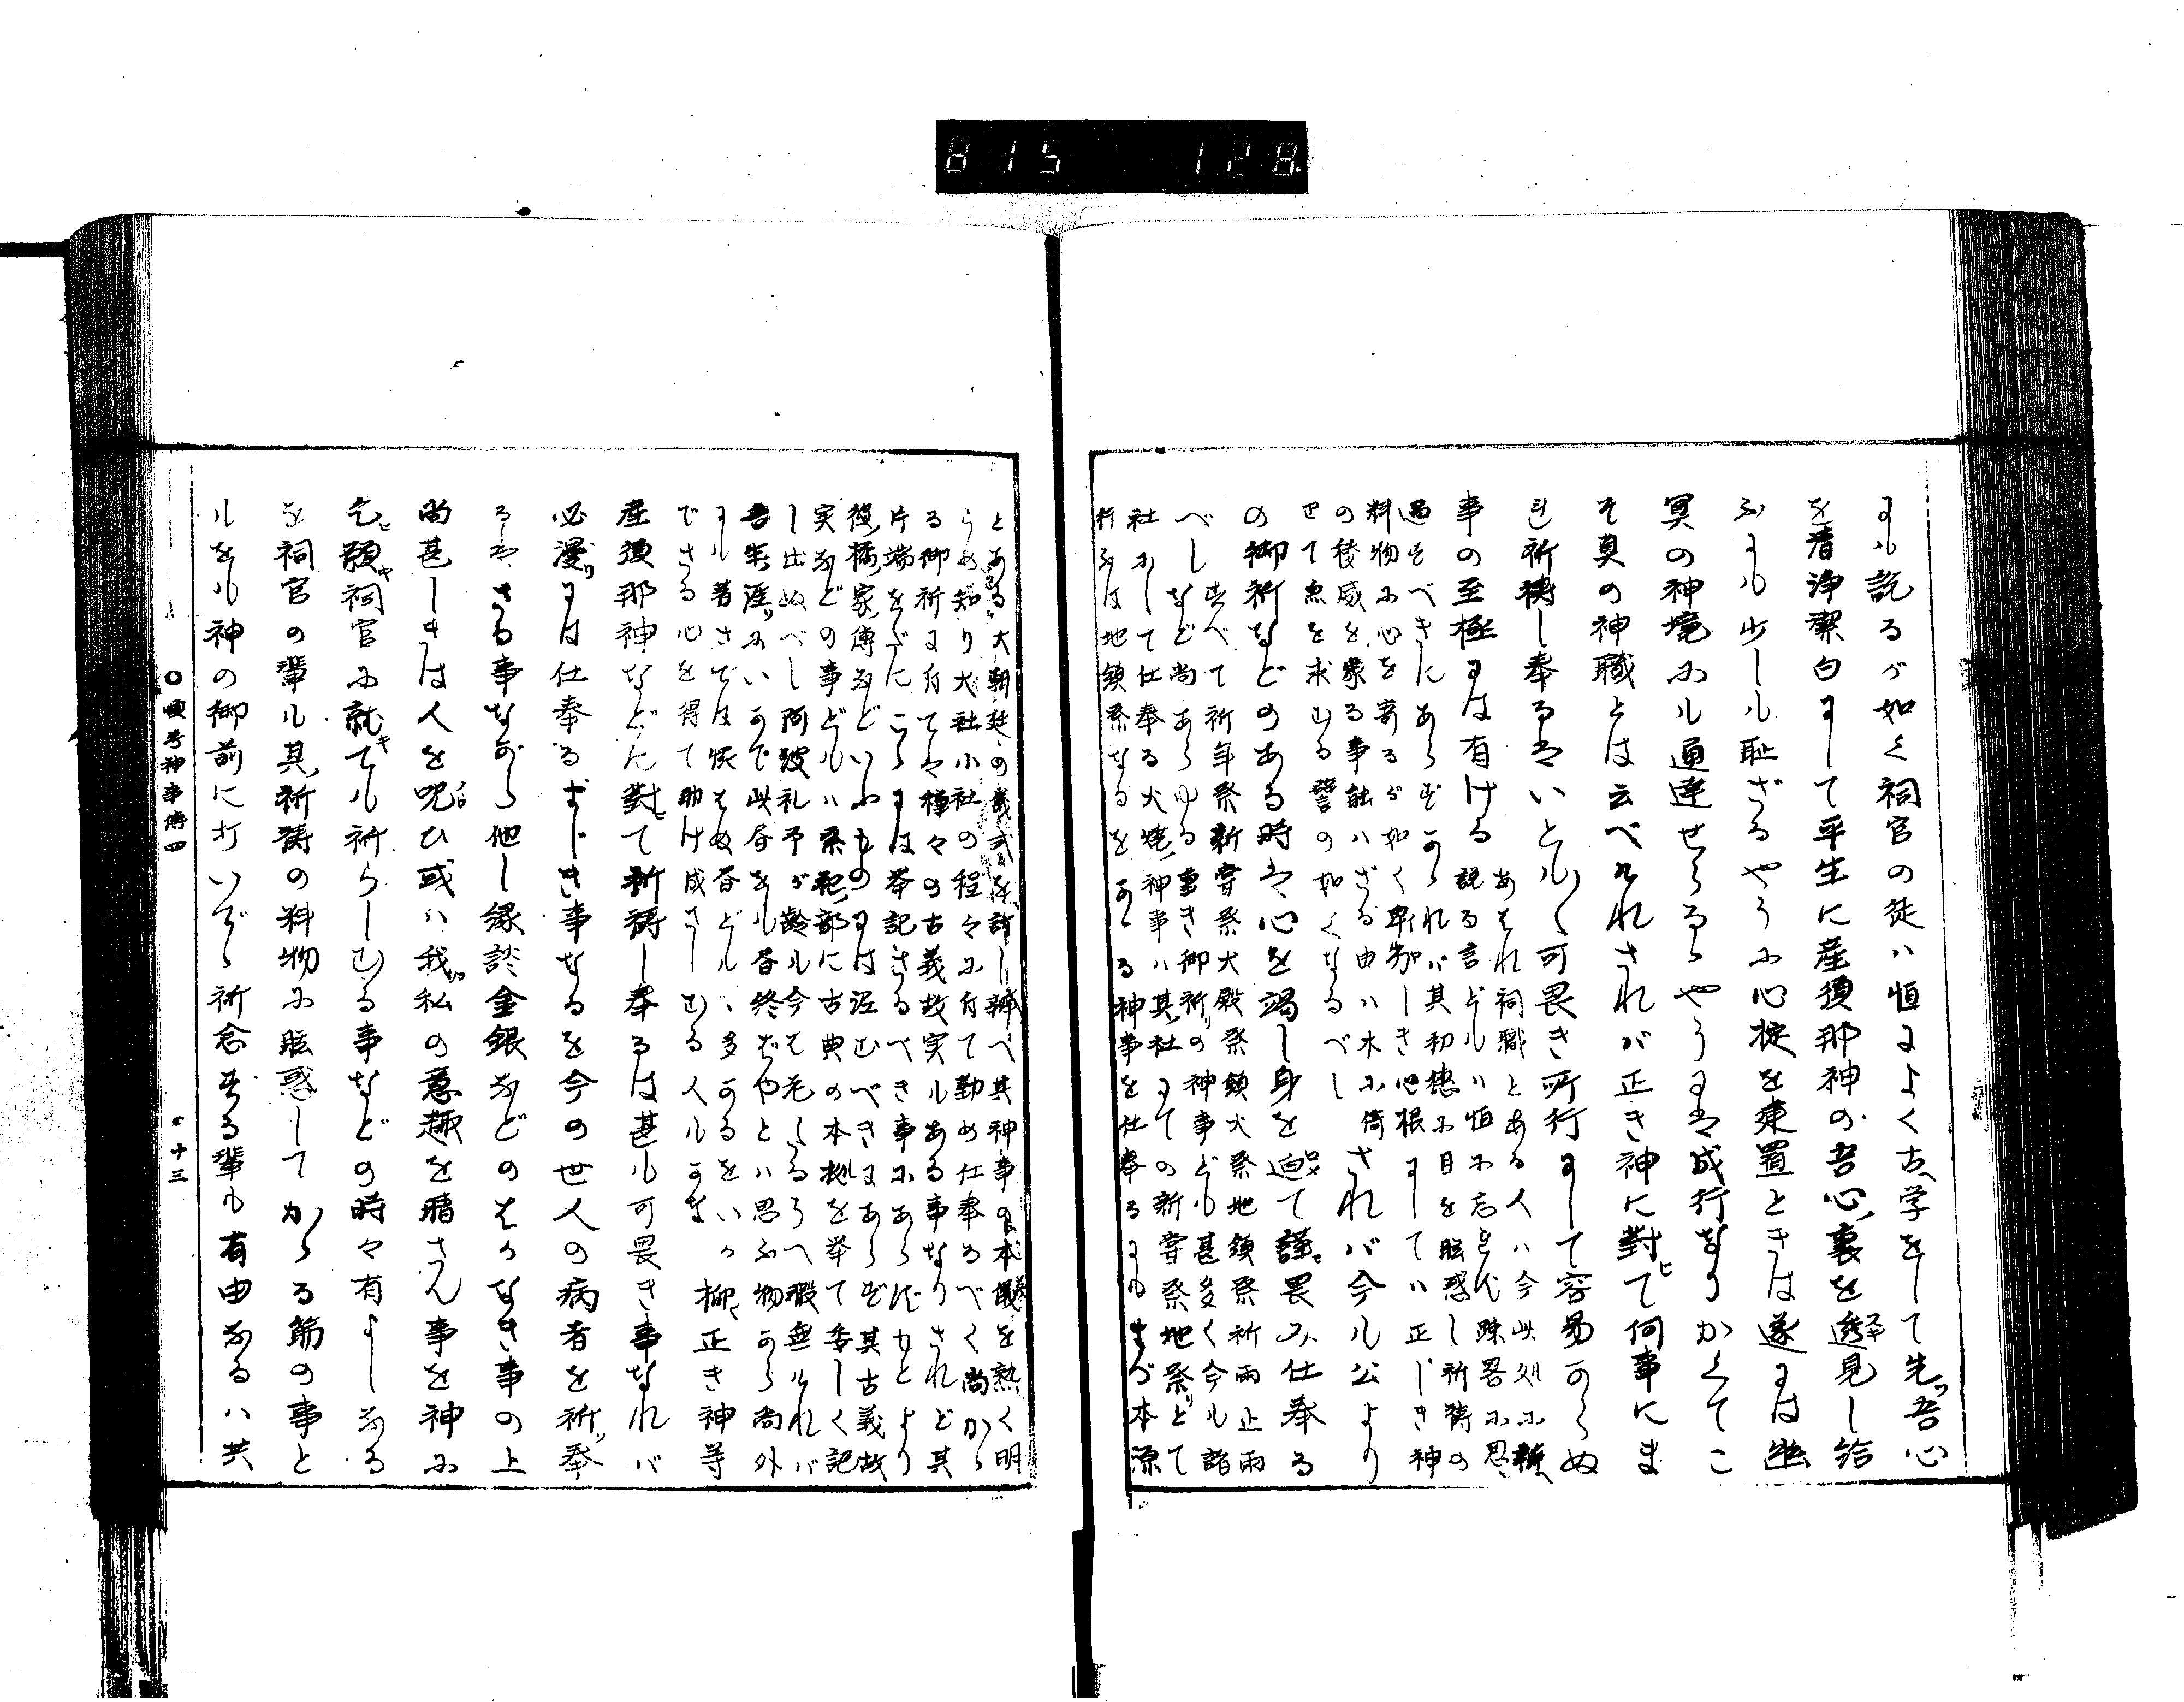 815 128
にも説るが如く祠官の徒ハ恒によく古学をして先ツ吾心
を清浄潔白にして平生に産須那神の吾心裏を透見し給
ふにも少しも恥ざるやうに心掟を建置ときは遂には幽
冥の神境にも通達せらるゝやうにも成行なりかくてこ
そ真の神職とは云べけれされバ正き神に對て何事にま
れ祈祷し奉るハいとも〳〵可畏き所行にして容易からぬ
事の至極には有ける
あはれ祠職とある人ハ今此処に
説る言どもハ恒に忘れず疎畧に思
過すべきにあらずかゝれバ其初穂に目を眩惑し祈祷の
料物に心を寄るが如く卑劣しき心根にしてハ正しき神
の稜威を蒙る事能ハざる由ハ木に倚
せて魚を求むる譬の如くなるべし
されバ今も公より
の御祈などのある時ハ心を竭し身を迫て謹畏み仕奉る
べし
すべて祈年祭新甞祭大殿祭鎮火祭地鎮祭祈雨止雨
など尚あらゆる重き御祈の神事ども甚多く今も諸
社にして仕奉る火焼神事ハ其社にての新甞祭地祭とて
行ふは地鎮祭なるをかゝる神事を仕奉るにもまづ本源
とある大朝廷の義式を許し辨べ其神事の本義を熟く明
らめ知り大社小社の程々に有て勤め仕奉るべく尚かゝ
る御祈に有ても種々の古義故実もある事なりされど其
片端をだにこゝには挙記さるべき事にあらずもとより
役橘家傳などいふものには泥むべきにあらず其古義故
実などの事どもハ系祀部に古典の本拠を挙て委しく記
し出ぬべし阿波礼予が齢も今は老たるうへ暇無けれバ
吾生涯にいかで此書をも書終ばやとハ思ふ物から尚外
にも著さでは候はぬ書ども多かるをいかゞ
でさる心を得て助け成さしむる人もがな
抑正き神等
産須那神などに對て祈祷し奉るは甚も可畏き事なれバ
必漫には仕奉るまじき事なるを今の世人の病者を祈奉
るハさる事ながら他し縁談金銀などのはかなき事の上
尚甚しきは人を呪ひ或ハ我私の意趣を晴さん事を神に
乞願祠官に就ても祈らしむる事などの時々有よしなる
を祠官の輩も其祈祷の料物に眩惑してかゝる筋の事と
もをも神の御前に打いでゝ祈念する輩も有由なるハ共
○顕考神事傳四
十三